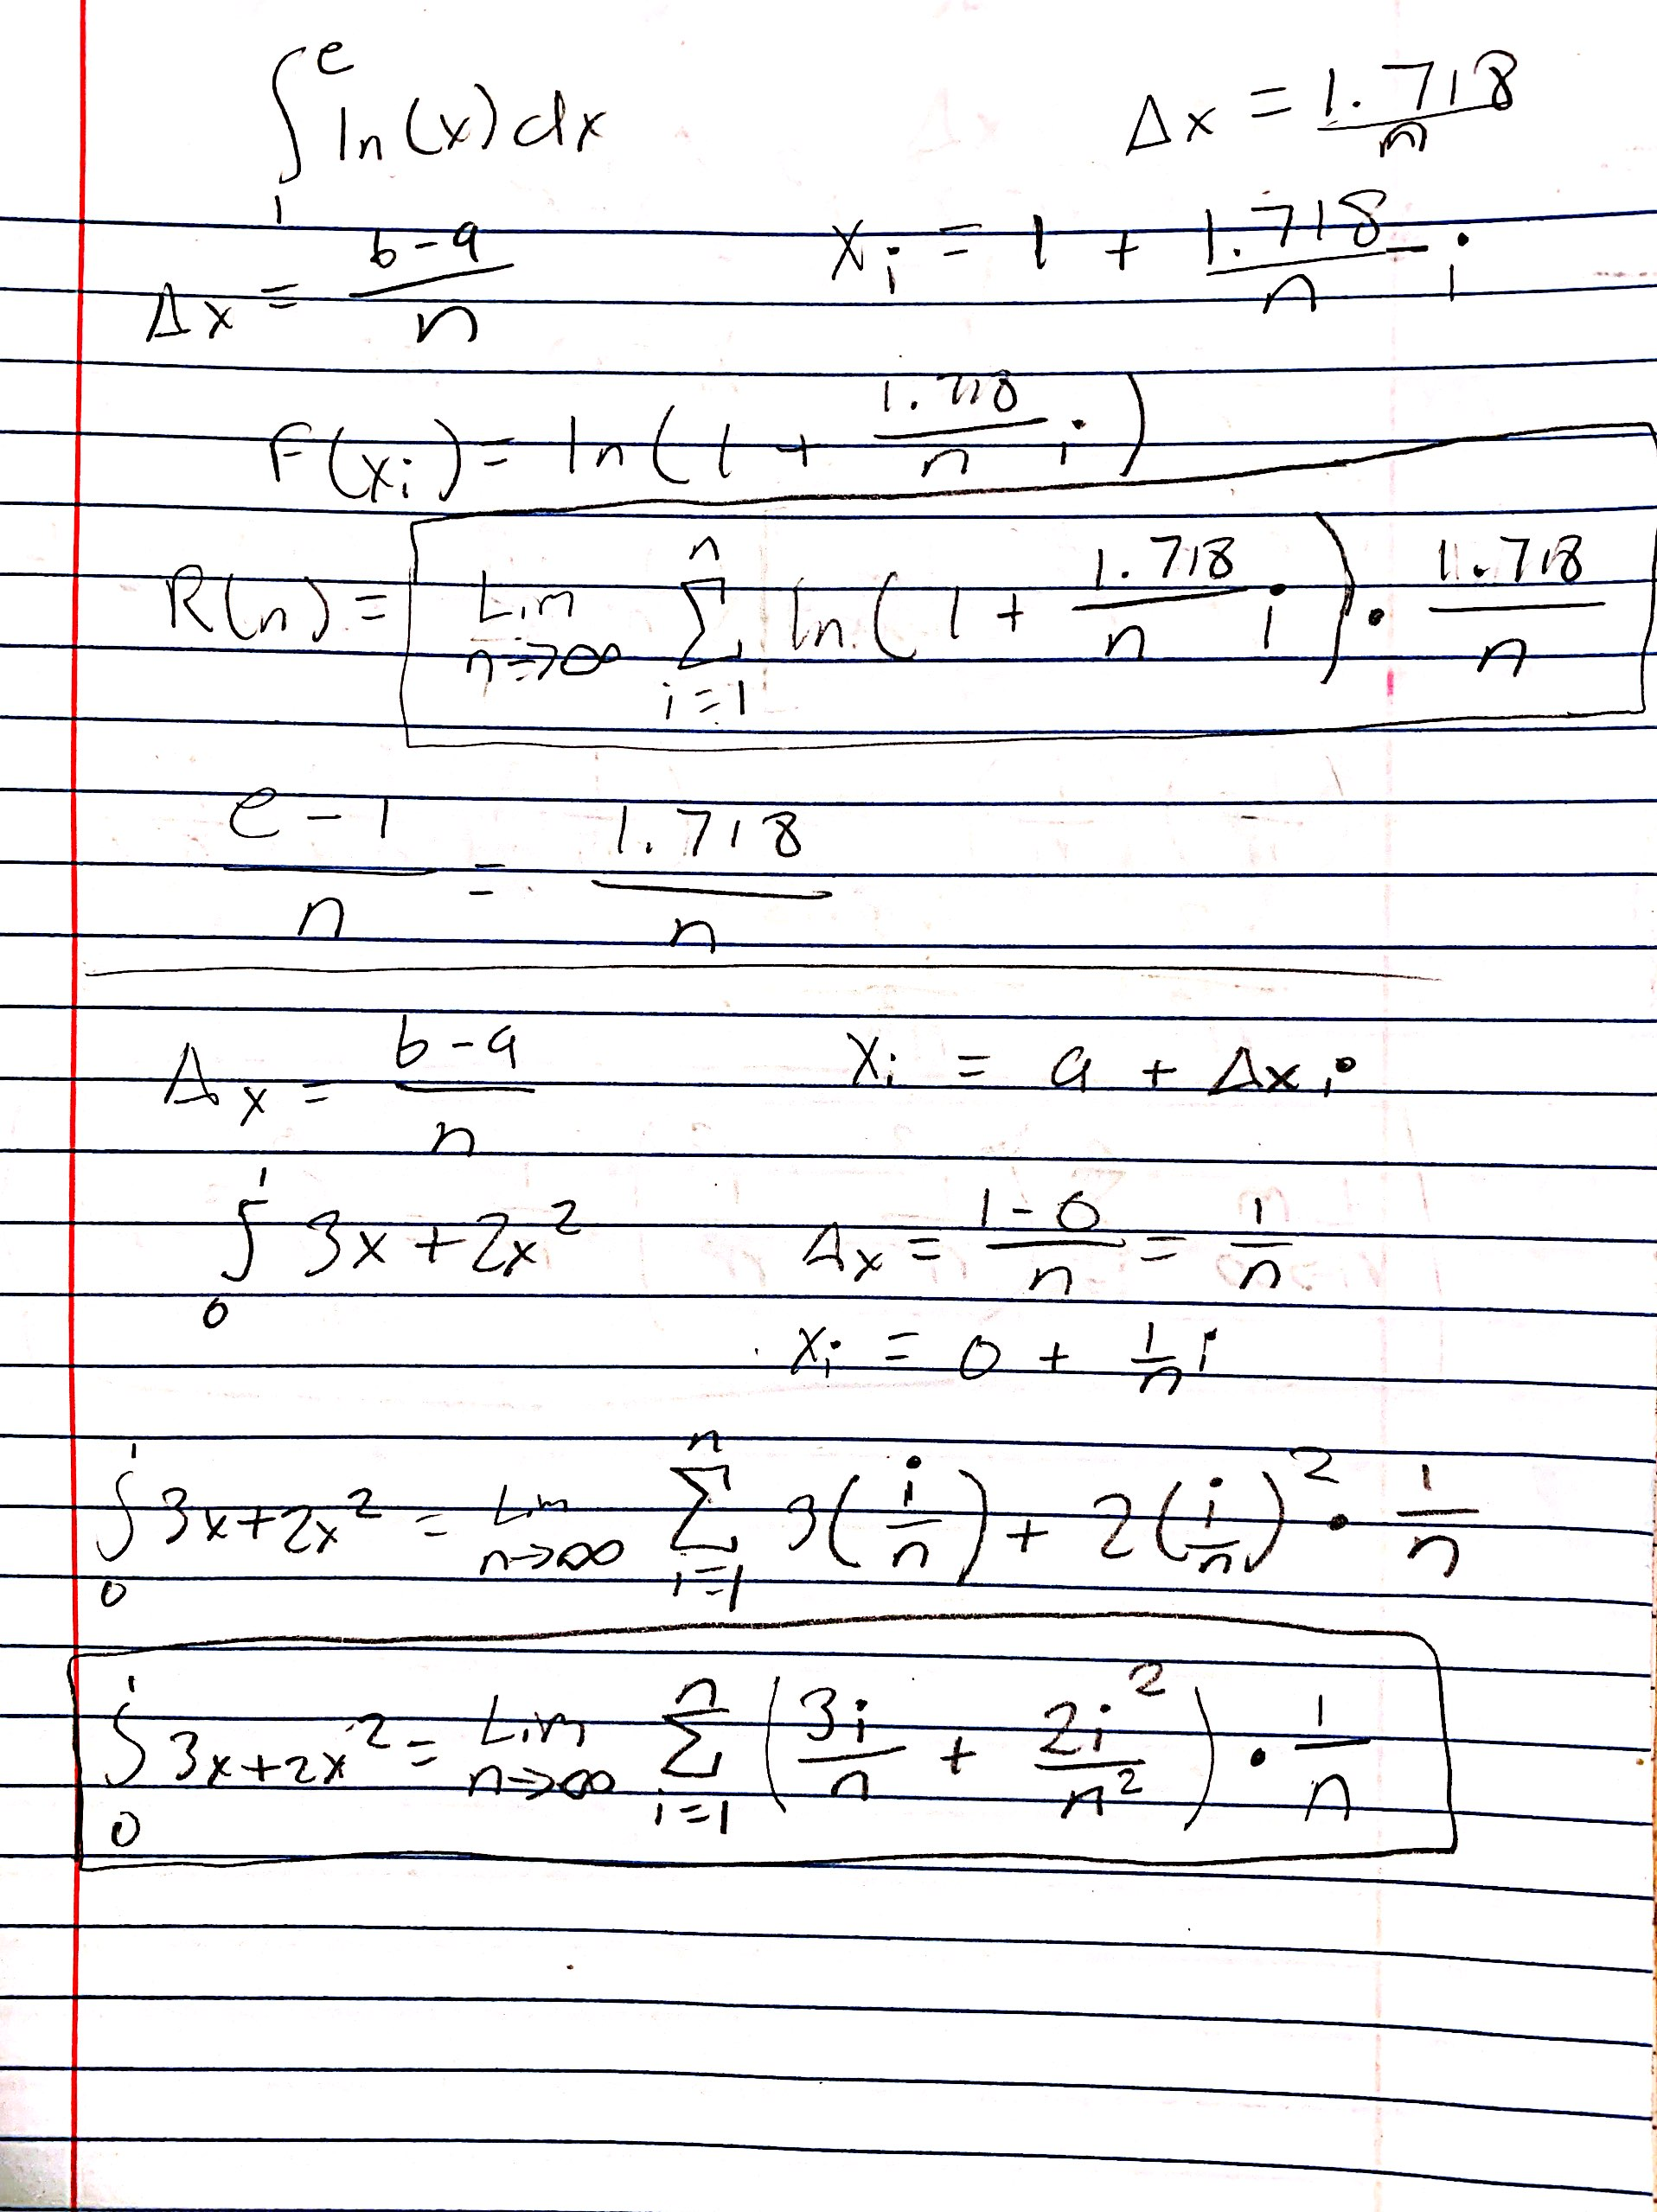 ∫₁ᵉ ln(x)dx    Δx = 1.718/n
Δx = (b-a)/n    xᵢ = 1 + 1.718/n i
F(xᵢ) = ln(1 + 1.718/n i)
R(n) = Lim n→∞ Σ i=1 n ln(1 + 1.718/n i) · 1.718/n
(e-1)/n = 1.718/n
Δx = (b-a)/n    xᵢ = a + Δx i
∫₀¹ 3x+2x²    Δx = (1-0)/n = 1/n
xᵢ = 0 + 1/n i
∫₀¹ 3x+2x² = Lim n→∞ Σ i=1 n 3(i/n) + 2(i/n)² · 1/n
∫₀¹ 3x+2x² = Lim n→∞ Σ i=1 n (3i/n + 2i²/n²) · 1/n